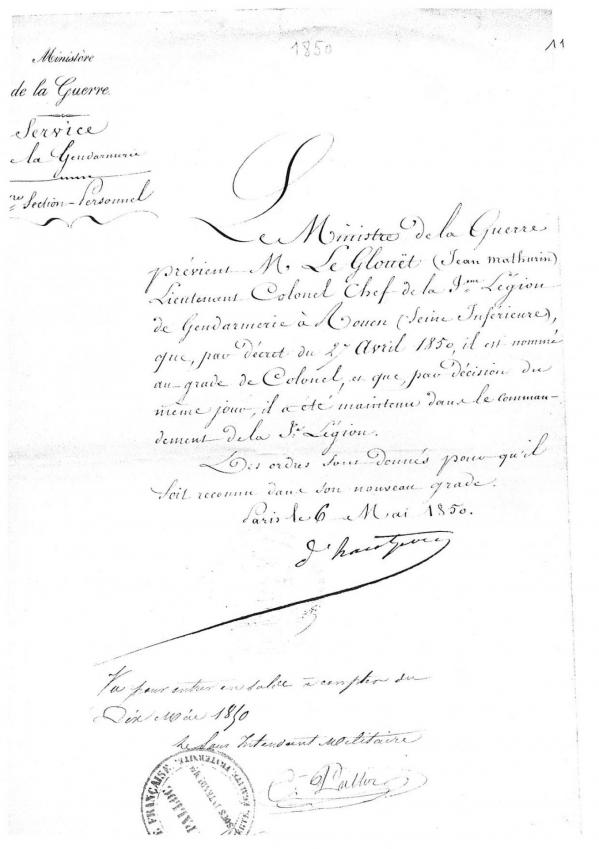 1850
11
Ministère
de la Guerre.
Service
de la Gendarmerie
re Section-Personnel
Le Ministre de la Guerre
prévient M. Le Glouët (Jean mathurin)
Lieutenant Colonel Chef de la Légion
de Gendarmerie à Rouen (Seine Inférieure),
que, par décret du 27 Avril 1850, il est nommé
au grade de Colonel, et que, par décision du
même jour, il a été maintenu dans le comman-
dement de la Légion.
Des ordres sont donnés pour qu'il
soit reconnu dans son nouveau grade.
Paris le 6 Mai 1850.
d'hautpoul
Vu pour entrer en solde à compter du
Dix Mai 1850
Le Sous Intendant Militaire
FRANÇAISE